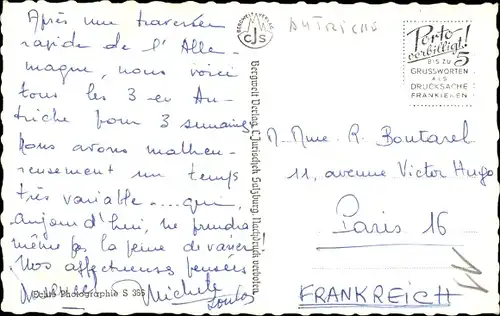 Après une traversée
rapide de l'Alle-
magne, nous voici
tous les 3 en Au-
triche pour 3 semaines
Nous avons malheu-
reusement un temps
très variable....qui,
aujourd'hui, ne prendra
même pas la peine de varier
Nos affectueuses pensées
Michèle
Echte Photographie S 365
BERGWELTVERLAG
CJS
Bergwelt Verlag C. Jurischek Salzburg. Nachdruck verboten.
AUTRICHE
Porto
verbilligt!
BIS ZU 5
GRUSSWORTEN
ALS
DRUCKSACHE
FRANKIEREN
M. Mme. R. Boutarel
11, avenue Victor Hugo
Paris 16
FRANKREICH